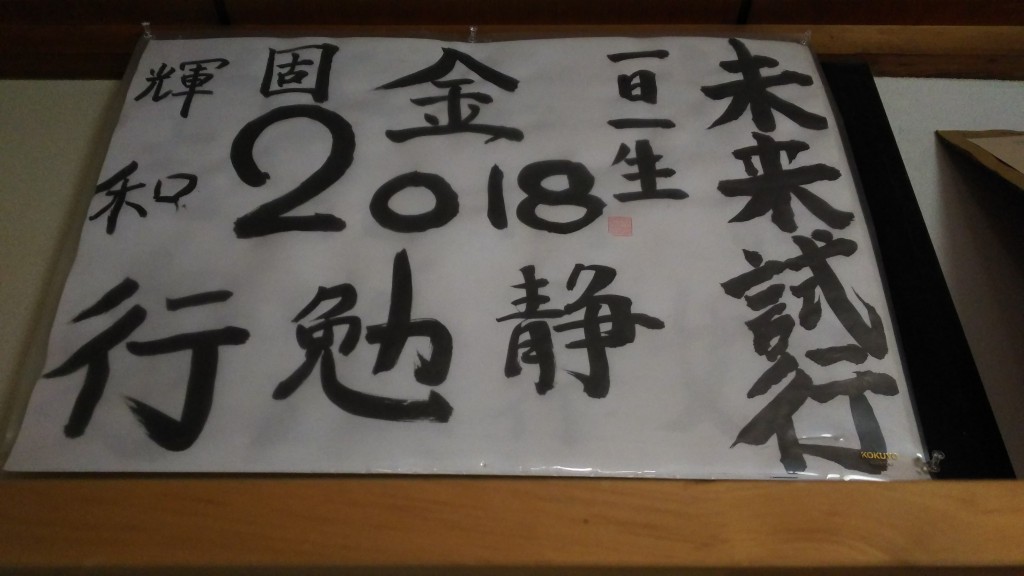 未来試行
一日一生
金
固
輝
2018
2
和
静
勉
行
KOKUYO